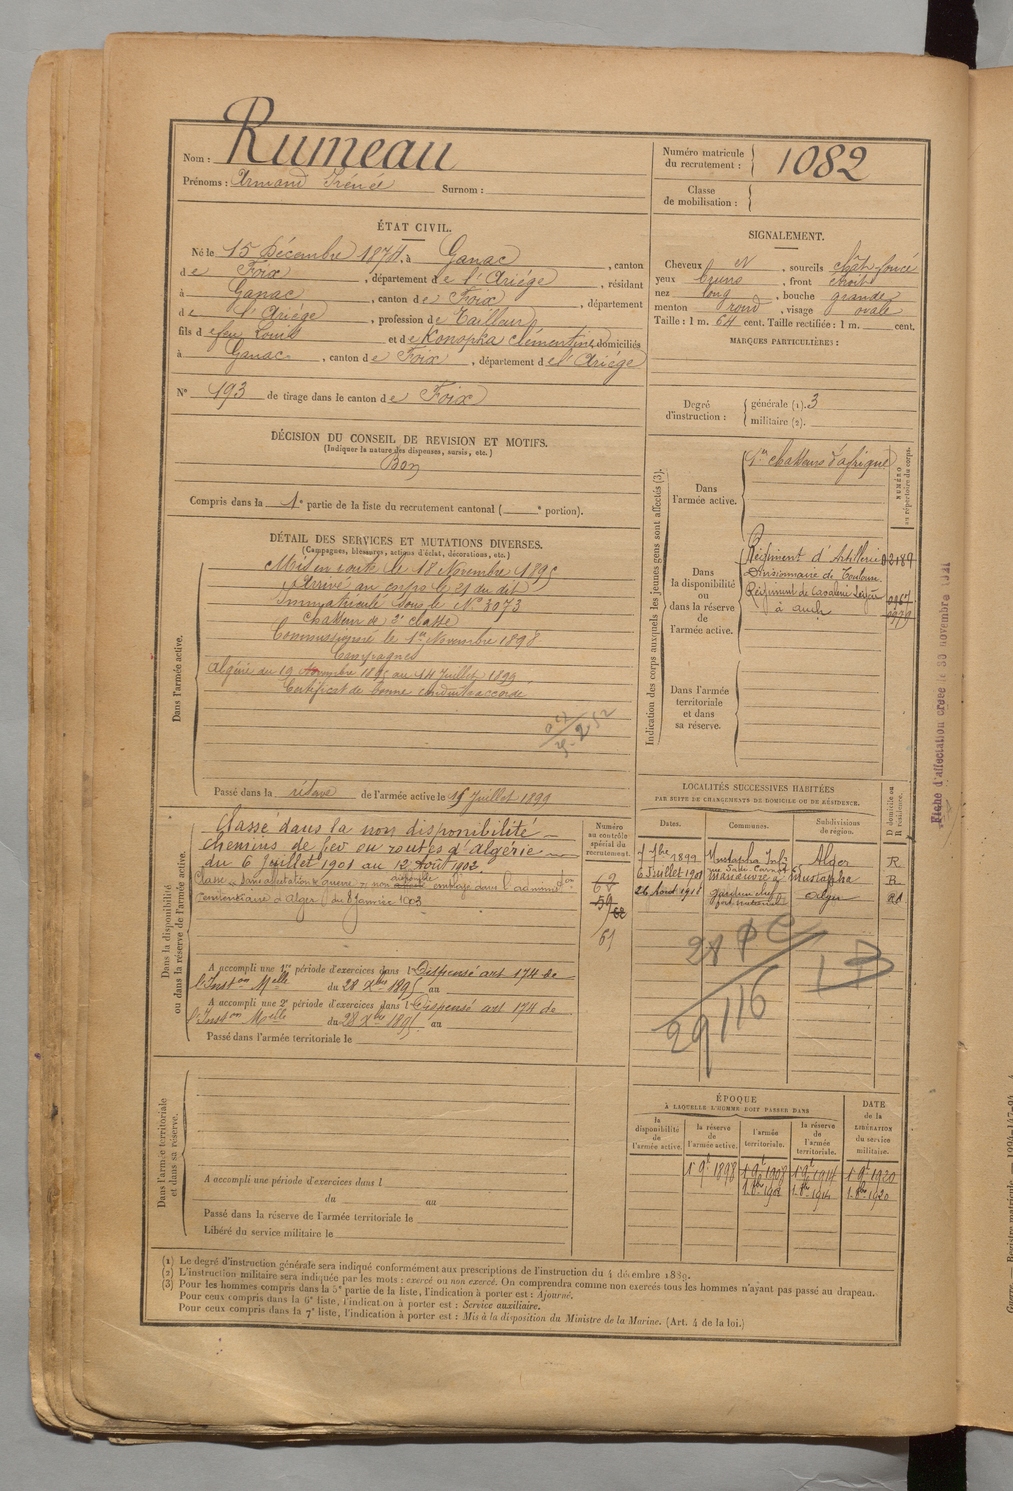 Nom : Rumeau
Prénoms : Armand Irénée Surnom :
Numéro matricule du recrutement : 1082
Classe de mobilisation :
ÉTAT CIVIL.
Né le 15 Décembre 1874, à Ganac, canton
de Foix, département de l'Ariége, résidant
à Ganac, canton de Foix, département
de l'Ariége, profession de Tailleur
fils de feu Louis et de Konopka Clémentine, domiciliés
à Ganac, canton de Foix, département de l'Ariége
N° 193 de tirage dans le canton de Foix
SIGNALEMENT.
Cheveux et, sourcils chât. foncé
yeux bruns, front étroit
nez long, bouche grande
menton rond, visage ovale
Taille : 1 m. 64 cent. Taille rectifiée : 1 m. cent.
MARQUES PARTICULIÈRES :
Degré d'instruction : générale (1). 3
militaire (2).
DÉCISION DU CONSEIL DE REVISION ET MOTIFS.
(Indiquer la nature des dispenses, sursis, etc.)
Bon
Compris dans la 1e partie de la liste du recrutement cantonal ( e portion).
DÉTAIL DES SERVICES ET MUTATIONS DIVERSES.
(Campagnes, blessures, actions d'éclat, décorations, etc.)
Dans l'armée active.
Mis en route le 18 Novembre 1895
Arrivé au corps le 21 du dit
Immatriculé sous le N° 3073
Chasseur de 2e classe
Commissionné le 1er Novembre 1898
Campagnes
Algérie du 19 Novembre 1895 au 14 Juillet 1899
Certificat de bonne conduite accordé
Passé dans la réserve de l'armée active le 15 Juillet 1899
Indication des corps auxquels les jeunes gens sont affectés (3).
NUMÉRO au répertoire du corps.
Dans l'armée active.
1er chasseurs d'afrique
Dans la disponibilité ou dans la réserve de l'armée active.
Régiment d'Artillerie 02189
Divisionnaire de Toulouse
Régiment de Cavalerie Légère 0967
à auch 0979
Dans l'armée territoriale et dans sa réserve.
Fiche d'affectation créée le 30 novembre 1911
Dans la disponibilité ou dans la réserve de l'armée active.
Classé dans la non disponibilité
chemins de fer en routes d'algérie
du 6 Juillet 1901 au 12 Août 1902
pénitentiaire d'Alger du 8 Janvier 1903
Numéro au contrôle spécial du recrutement.
62
59
62
61
A accompli une 1re période d'exercices dans l Dispensé art 174 de
l'Inston Melle du 28 Xbre 1895 au
A accompli une 2e période d'exercices dans l Dispensé art 174 de
l'Inston Melle du 28 Xbre 1895 au
Passé dans l'armée territoriale le
LOCALITÉS SUCCESSIVES HABITÉES
PAR SUITE DE CHANGEMENTS DE DOMICILE OU DE RÉSIDENCE.
Dates. Communes. Subdivisions de région. D domicile ou R résidence.
7 7bre 1899 Mustapha Alger R
6 Juillet 1901 manœuvre à Mustapha R
26 Août 1911 gardien chef Alger
28
29 116
Dans l'armée territoriale et dans sa réserve.
A accompli une période d'exercices dans l
du au
Passé dans la réserve de l'armée territoriale le
Libéré du service militaire le
ÉPOQUE
À LAQUELLE L'HOMME DOIT PASSER DANS
la disponibilité de l'armée active. la réserve de l'armée active. l'armée territoriale. la réserve de l'armée territoriale. DATE de la LIBÉRATION du service militaire.
1 9t 1898 1 9t 1908 1 9t 1914 1 9t 1920
(1) Le degré d'instruction générale sera indiqué conformément aux prescriptions de l'instruction du 4 décembre 1889.
(2) L'instruction militaire sera indiquée par les mots : exercé ou non exercé. On comprendra comme non exercés tous les hommes n'ayant pas passé au drapeau.
(3) Pour les hommes compris dans la 5e partie de la liste, l'indication à porter est : Ajourné.
Pour ceux compris dans la 6e liste, l'indication à porter est : Service auxiliaire.
Pour ceux compris dans la 7e liste, l'indication à porter est : Mis à la disposition du Ministre de la Marine. (Art. 4 de la loi.)